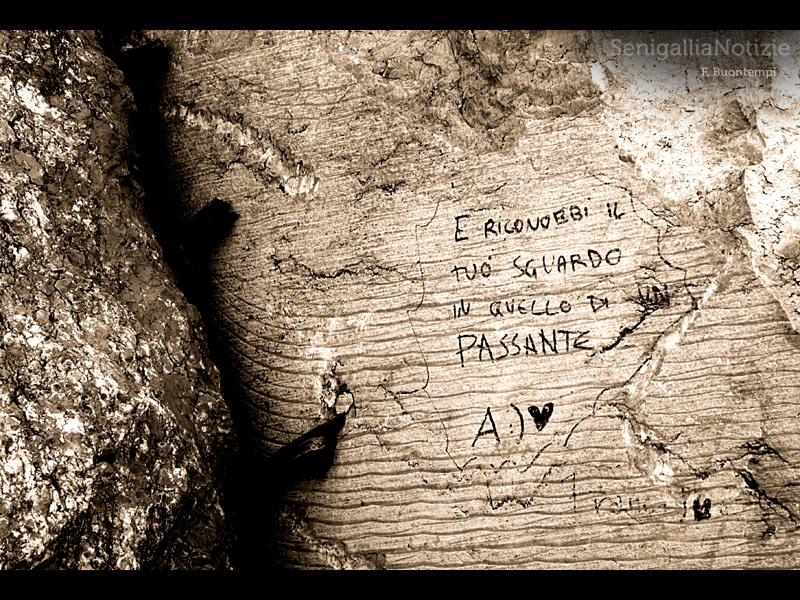 SenigalliaNotizie
F. Buontempi ©
E RICONOEBI IL
TUO SGUARDO
IN QUELLO DI UN
PASSANTE
A :) ♥